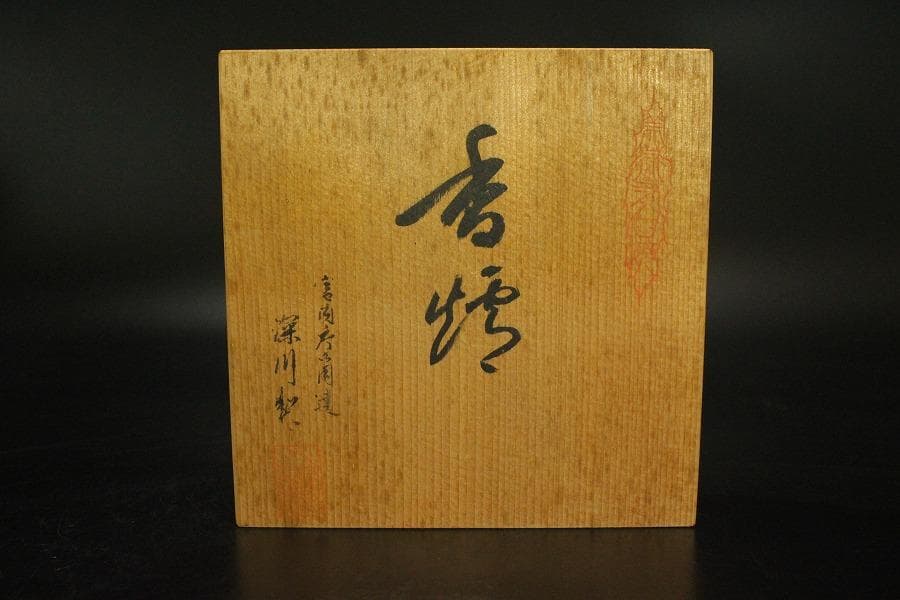 香爐
宮内庁御用達
深川製